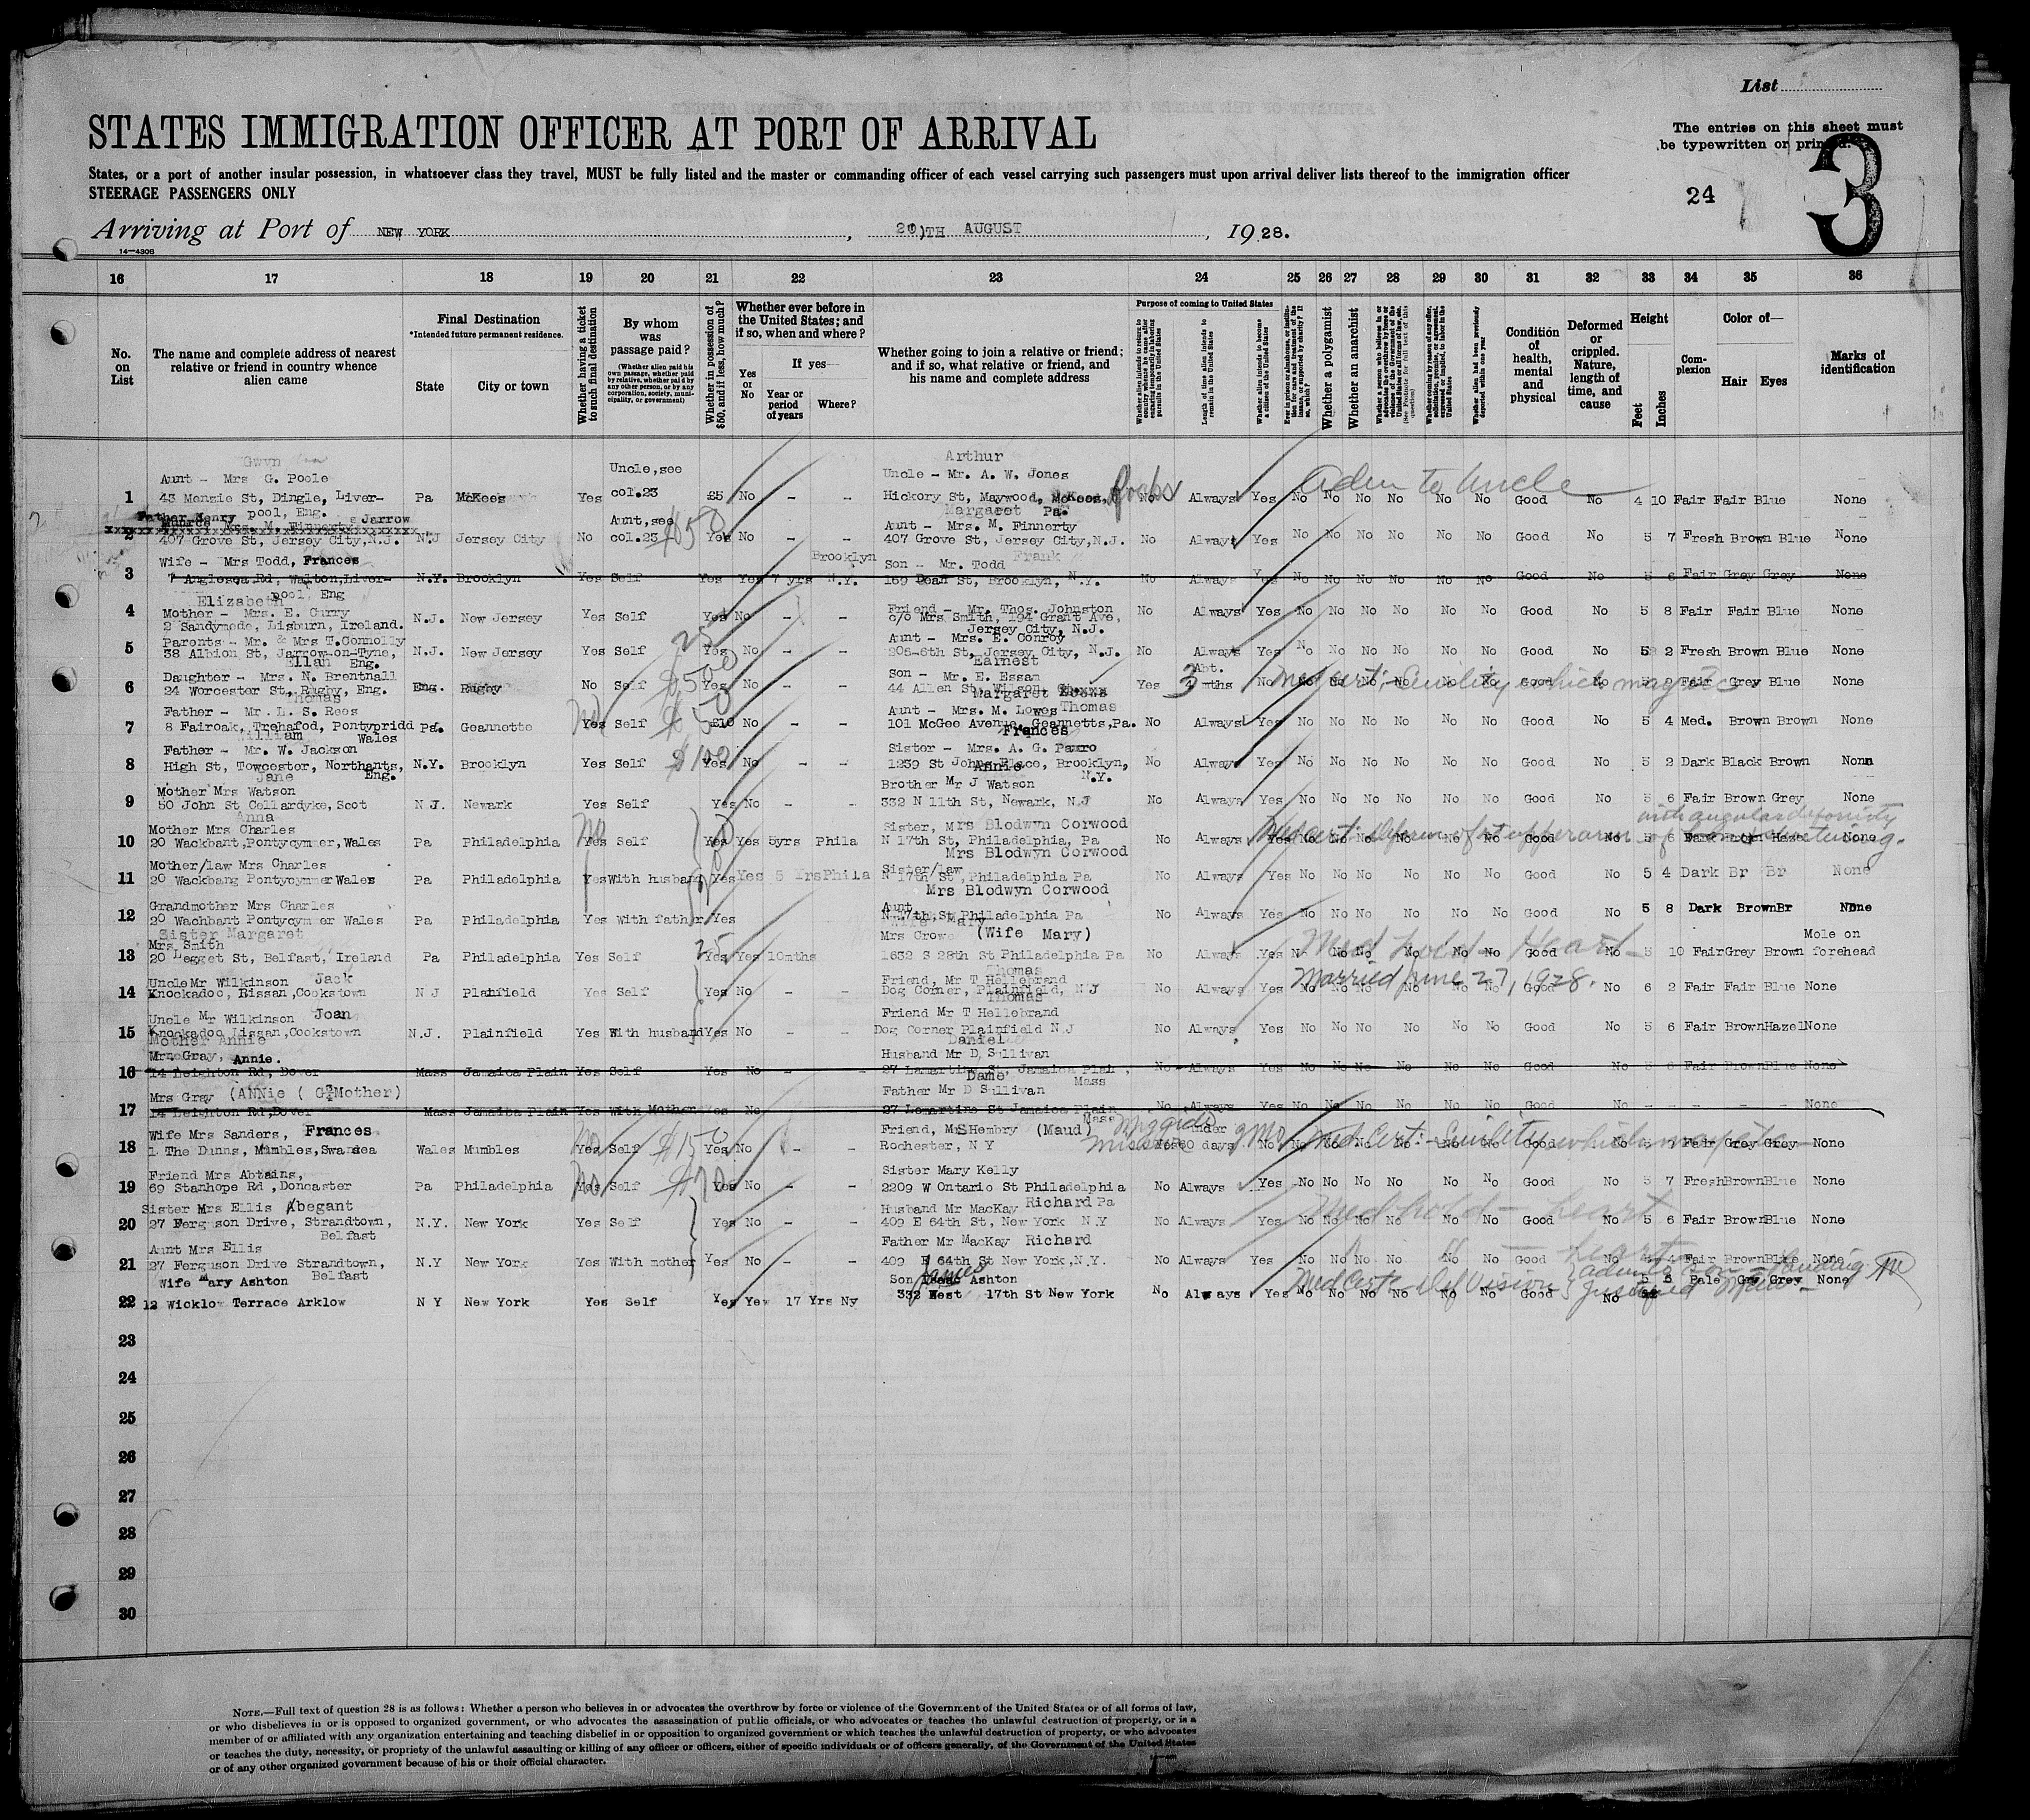 List
STATES IMMIGRATION OFFICER AT PORT OF ARRIVAL
The entries on this sheet must
be typewritten or printed.
States, or a port of another insular possession, in whatsoever class they travel, MUST be fully listed and the master or commanding officer of each vessel carrying such passengers must upon arrival deliver lists thereof to the immigration officer
STEERAGE PASSENGERS ONLY
24
3
Arriving at Port of NEW YORK, 20)TH AUGUST, 19 28.
14—4306
16 17 18 19 20 21 22 23 24 25 26 27 28 29 30 31 32 33 34 35 36
No. on List
The name and complete address of nearest relative or friend in country whence alien came
Final Destination
*Intended future permanent residence.
State
City or town
Whether having a ticket to such final destination
By whom was passage paid?
(Whether alien paid his own passage, whether paid by relative, whether paid by any other person, or by any corporation, society, municipality, or government)
Whether in possession of $50, and if less, how much?
Whether ever before in the United States; and if so, when and where?
Yes or No
If yes—
Year or period of years
Where?
Whether going to join a relative or friend; and if so, what relative or friend, and his name and complete address
Purpose of coming to United States
Whether alien intends to return to country whence he came after engaging temporarily in laboring pursuits in the United States
Length of time alien intends to remain in the United States
Whether alien intends to become a citizen of the United States
Whether a polygamist
Whether an anarchist
Condition of health, mental and physical
Deformed or crippled. Nature, length of time, and cause
Height
Feet
Inches
Complexion
Color of—
Hair
Eyes
Marks of identification
Gwyn Arthur
Aunt - Mrs G. Poole Uncle, see Uncle - Mr. A. W. Jones
1 43 Menzie St, Dingle, Liver- Pa McKees Yes col.23 £5 No - - Hickory St, Maywood, McKees, Rocks No Always Yes No No No No No No Good No 4 10 Fair Fair Blue None
pool, Eng. Margaret Pa.
Father Henry Jarrow
Mrs. M. Finnerty Aunt, see $50 Aunt - Mrs. M. Finnerty
2 407 Grove St, Jersey City, N.J. N.J Jersey City No col.23 Yes No 407 Grove St, Jersey City, N.J. No Always Yes No No No No No No Good No 5 7 Fresh Brown Blue None
Wife - Mrs Todd, Frances Brooklyn Son - Mr. Todd Frank
3 7 Anglesea Rd, Walton, Liver- N.Y. Brooklyn Yes Self Yes Yes 7 yrs N.Y. 169 Dean St, Brooklyn, N.Y. No Always Yes No No No No No No Good No 5 6 Fair Grey Grey None
pool, Eng
Elizabeth
Mother - Mrs. E. Curry Friend - Mr. Thos. Johnston
4 2 Sandymede, Lisburn, Ireland. N.J. New Jersey Yes Self Yes No - - c/o Mrs Smith, 194 Grant Ave, No Always Yes No No No No No No Good No 5 8 Fair Fair Blue None
Jersey City, N.J.
Parents - Mr. & Mrs T.Connolly Aunt - Mrs. E. Conroy
5 38 Albion St, Jarrow-on-Tyne, N.J. New Jersey Yes Self 25 Yes No - - 206-6th St, Jersey City, N.J. No Always Yes No No No No No No Good No 5 2 Fresh Brown Blue None
Ellah Eng. Earnest
Daughter - Mrs. N. Brentnall Son - Mr. E. Essam Abt.
6 24 Worcester St, Rugby, Eng. Eng. Rugby No Self $500 Yes No - - 44 Allen St, Yes 3 mths No Med cert: Senility which may No No No Good No Fair Grey Blue None
Thomas Margaret
Father - Mr. L. S. Rees Aunt - Mrs. M. Lowes Thomas
7 8 Fairoak, Trehafod, Pontypridd Pa. Geannette Yes No Self $50 £10 No - - 101 McGee Avenue, Geannetts, Pa. No Always Yes No No No No No No Good No 5 4 Med. Brown Brown None
William Wales Frances
Father - Mr. W. Jackson Sister - Mrs. A. G. Pauro
8 High St, Towcester, Northants, N.Y. Brooklyn Yes Self $100 Yes No - - 1239 St Johns Place, Brooklyn, No Always Yes No No No No No No Good No 5 2 Dark Black Brown None
Jane Eng. Annie N.Y.
Mother Mrs Watson Brother Mr J Watson
9 50 John St Cellardyke, Scot N J. Newark Yes Self Yes No - - 332 N 11th St, Newark, N.J No Always Yes No No No No No No Good No 5 6 Fair Brown Grey None
Anna with angular deformity
Mother Mrs Charles Sister, Mrs Blodwyn Corwood
10 20 Wackbant, Pontycymmer, Wales Pa Philadelphia Yes No Self Yes Yes 5yrs Phila N 17th St, Philadelphia, Pa No Always Yes Med cert: No No No No No Good No 5 6 Dark Brown Hazel None
Mrs Blodwyn Corwood
Mother/law Mrs Charles Sister/law
11 20 Wackbang Pontycymmer Wales Pa Philadelphia Yes With husband Yes Yes 5 Yrs Phila N 17th St, Philadelphia Pa No Always Yes No No No No No No Good No 5 4 Dark Br Br None
Mrs Blodwyn Corwood
Grandmother Mrs Charles Aunt
12 20 Wachbant Pontycymer Wales Pa Philadelphia Yes With father Yes N 17th, St Philadelphia Pa No Always Yes No No No No No No Good No 5 8 Dark Brown Br None
Sister Margaret Wife Mary
Mrs Smith Mrs Crowe (Wife Mary) Mole on
13 20 Legget St, Belfast, Ireland Pa Philadelphia Yes Self 25 Yes Yes 10mths 1632 S 28th St Philadelphia Pa No Always Yes Med hold - Heart Good No 5 10 Fair Grey Brown forehead
Thomas
Uncle Mr Wilkinson Jack Friend, Mr T Hellebrand Married June 27, 1928.
14 Knockadoo, Rissan, Cookstown N J Planfield Yes Self Yes No - - Dog Corner, Plainfield, N J No Always Yes No No No No No No Good No 6 2 Fair Fair Blue None
Thomas
Uncle Mr Wilkinson Joan Friend Mr T Hellebrand
15 Knockadoo Lissan, Cookstown N.J. Plainfield Yes With husband Yes No - - Dog Corner Plainfield N.J No Always Yes No No No No No No Good No 5 6 Fair Brown Hazel None
Mother Annie Daniel
Mrs. Gray, Annie. Husband Mr D Sullivan
16 14 Leighton Rd, Dover Mass Jamaica Plain Yes Self Yes No - - 27 Lamartine St, Jamaica Plain, No Always Yes No No No No No No Good No 5 6 Fair Brown Blue None
Mass
Mrs Gray (ANNie ( G?Mother) Father Mr D Sullivan
17 14 Leighton Rd, Dover Mass Jamaica Plain Yes With Mother Yes No 27 Lomartine St Jamaica Plain No Always Yes No No No No No No Good No - - - - - None
Mass
Wife Mrs Sanders, Frances Friend, Mrs Hembry (Maud) under
18 1 The Dunns, Mumbles, Swansea Wales Mumbles Yes No Self $150 Yes No - - Rochester, N Y Yes 60 days No Med Cert: Senility which may Good No Fair Grey Grey None
Friend Mrs Abtains, Sister Mary Kelly
19 69 Stanhope Rd, Doncaster Pa Philadelphia Yes No Self $70 Yes No - - 2209 W Ontario St Philadelphia No Always Yes No No No No No No Good No 5 7 Fresh Brown Blue None
Sister Mrs Ellis Abegant Husband Mr MacKay Richard Pa Med hold - heart
20 27 Ferguson Drive, Strandtown, N.Y. New York Yes Self Yes No - - 409 E 64th St, New York N.Y No Always Yes No No No No No No Good No 5 6 Fair Brown Blue None
Belfast
Aunt Mrs Ellis Father Mr MacKay Richard
21 27 Ferguson Drive Strandtown, N.Y New York Yes With mother Yes No - - 409 E 64th St New York, N.Y. No Always Yes No No No No No No Good No 4 Fair Brown Blue None
Belfast James
Wife Mary Ashton Son Ashton Med Cert Def Vision 5 5 Pale Gry Grey None
22 12 Wicklow Terrace Arklow N Y New York Yes Self Yes Yes 17 Yrs Ny 332 West 17th St New York No Always Yes No No No No No No Good No
Aden to Uncle
23
24
25
26
27
28
29
30
NOTE.—Full text of question 28 is as follows: Whether a person who believes in or advocates the overthrow by force or violence of the Government of the United States or of all forms of law,
or who disbelieves in or is opposed to organized government, or who advocates the assassination of public officials, or who advocates or teaches the unlawful destruction of property, or is a
member of or affiliated with any organization entertaining and teaching disbelief in or opposition to organized government or which teaches the unlawful destruction of property, or who advocates
or teaches the duty, necessity, or propriety of the unlawful assaulting or killing of any officer or officers, either of specific individuals or of officers generally, of the Government of the United States
or of any other organized government because of his or their official character.